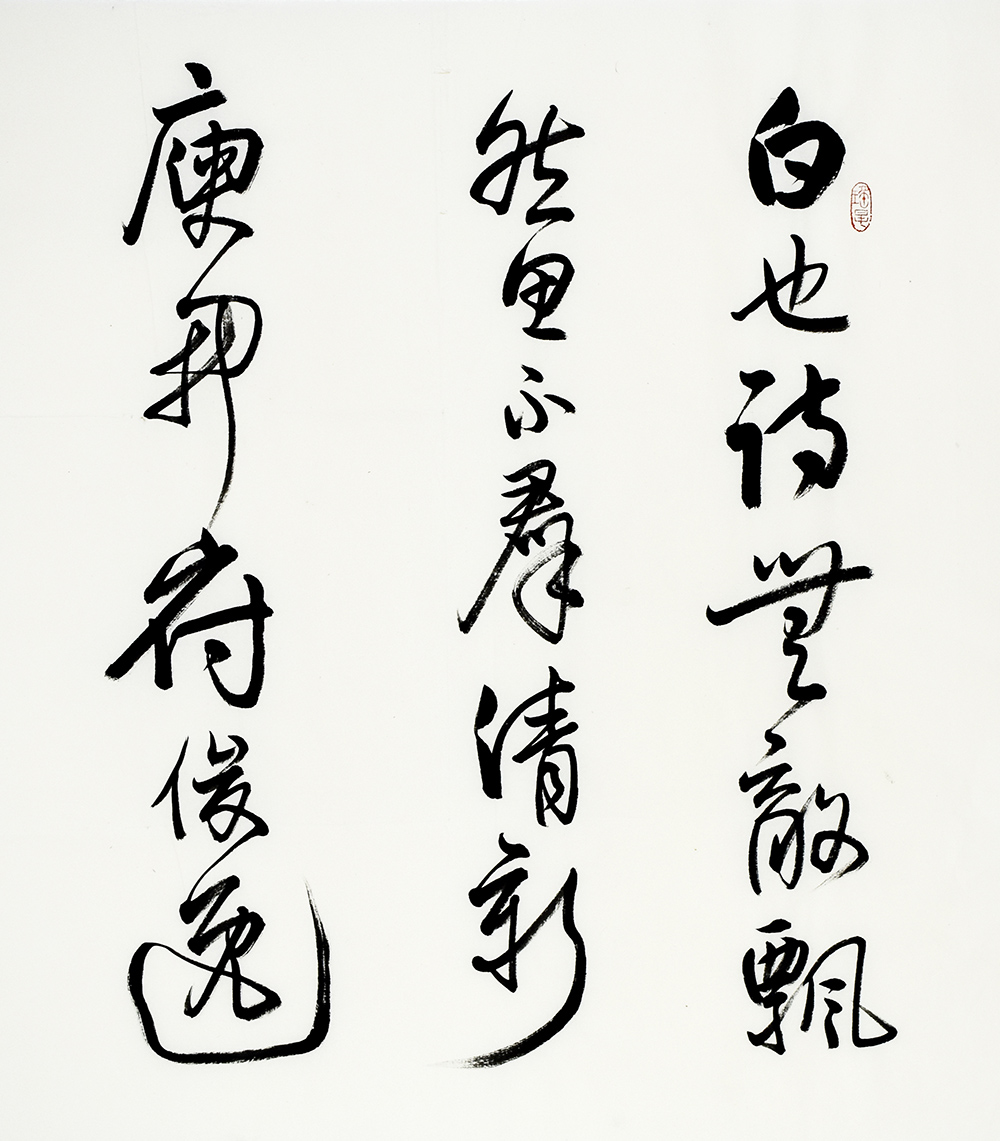 白也詩無敵飄
然思不群清新
庾開府俊逸